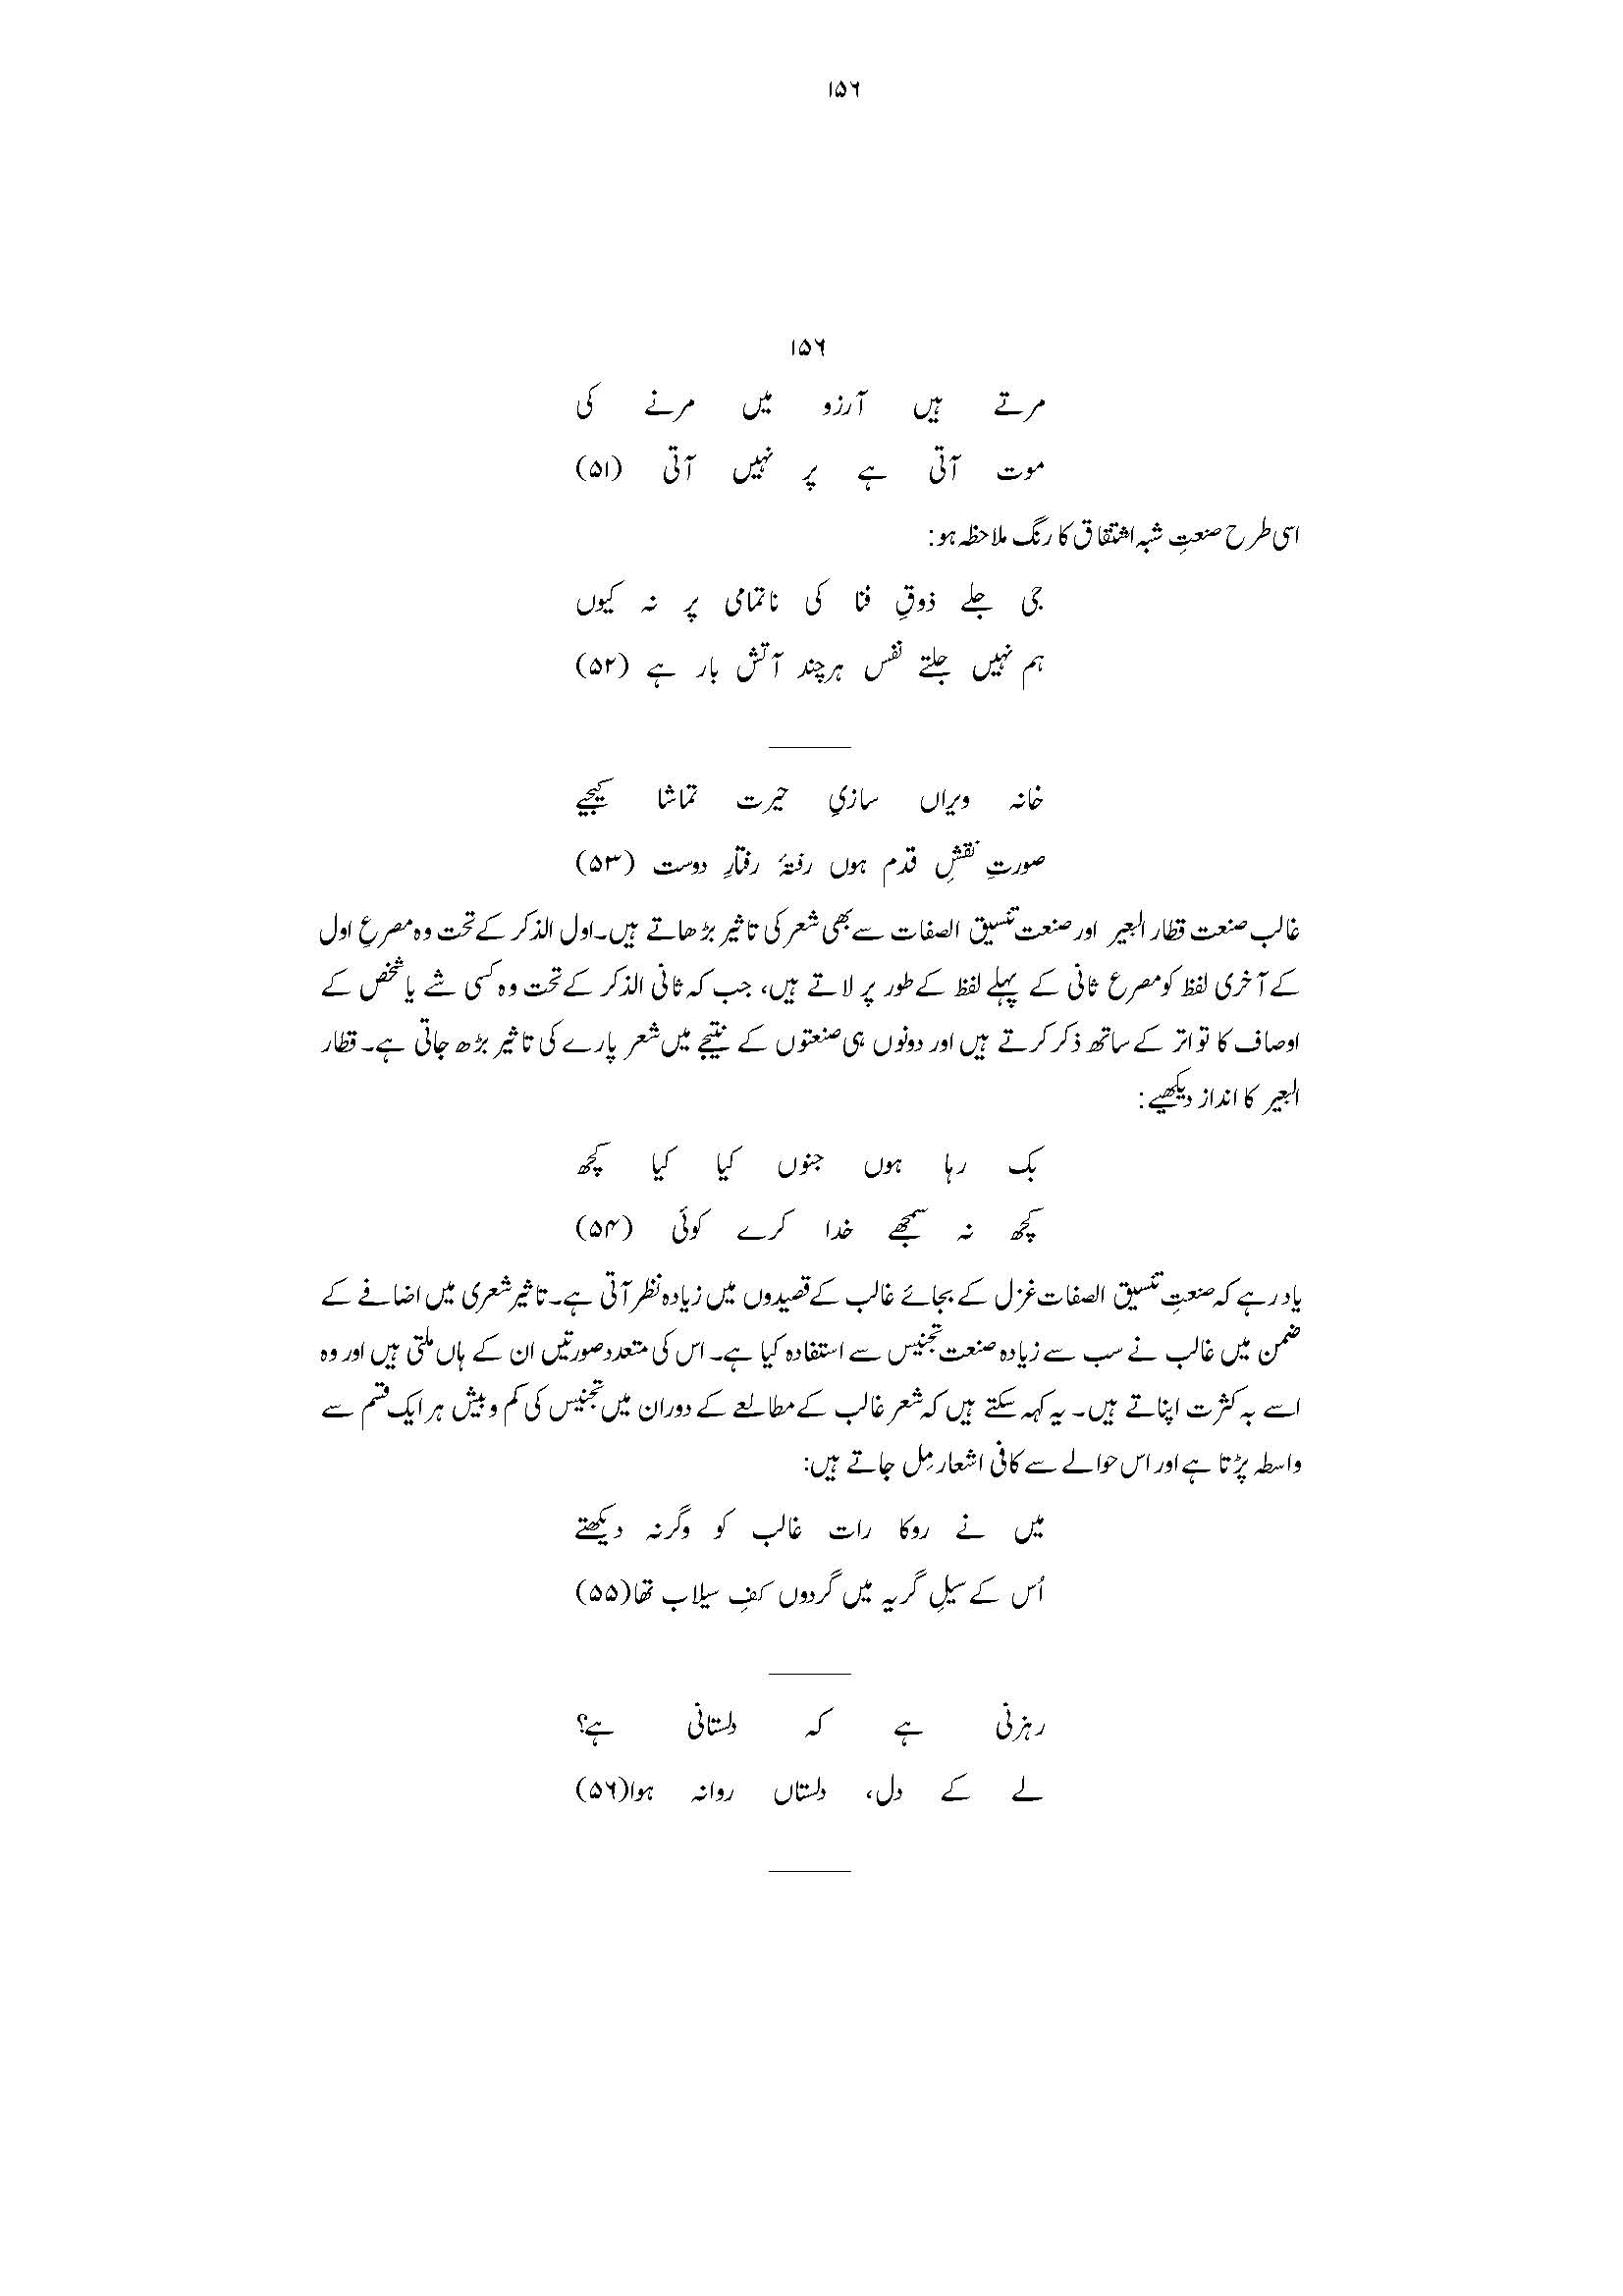 ۱۵۶
۱۵۶
مرتے ہیں آرزو میں مرنے کی
موت آتی ہے پر نہیں آتی (۵۱)
اسی طرح صنعتِ شبہ اشتقاق کا رنگ ملاحظہ ہو:
جی جلے ذوقِ فنا کی ناتمامی پر نہ کیوں
ہم نہیں جلتے نفس ہرچند آتش بار ہے (۵۲)
خانہ ویراں سازیِ حیرت تماشا کیجیے
صورتِ نقشِ قدم ہوں رفتۂ رفتارِ دوست (۵۳)
غالب صنعت قطار البعیر اور صنعت تنسیق الصفات سے بھی شعر کی تاثیر بڑھاتے ہیں۔اول الذکر کے تحت وہ مصرعِ اول
کے آخری لفظ کو مصرع ثانی کے پہلے لفظ کے طور پر لاتے ہیں، جب کہ ثانی الذکر کے تحت وہ کسی شے یا شخص کے
اوصاف کا تواتر کے ساتھ ذکر کرتے ہیں اور دونوں ہی صنعتوں کے نتیجے میں شعر پارے کی تاثیر بڑھ جاتی ہے۔ قطار
البعیر کا انداز دیکھیے:
بک رہا ہوں جنوں کیا کیا کچھ
کچھ نہ سمجھے خدا کرے کوئی (۵۴)
یاد رہے کہ صنعتِ تنسیق الصفات غزل کے بجائے غالب کے قصیدوں میں زیادہ نظر آتی ہے۔ تاثیرِ شعری میں اضافے کے
ضمن میں غالب نے سب سے زیادہ صنعت تجنیس سے استفادہ کیا ہے۔ اس کی متعدد صورتیں ان کے ہاں ملتی ہیں اور وہ
اسے بہ کثرت اپناتے ہیں۔ یہ کہہ سکتے ہیں کہ شعر غالب کے مطالعے کے دوران میں تجنیس کی کم و بیش ہر ایک قسم سے
واسطہ پڑتا ہے اور اس حوالے سے کافی اشعار مِل جاتے ہیں:
میں نے روکا رات غالب کو وگرنہ دیکھتے
اُس کے سیلِ گریہ میں گردوں کفِ سیلاب تھا(۵۵)
رہزنی ہے کہ دلستانی ہے؟
لے کے دل، دلستاں روانہ ہوا(۵۶)